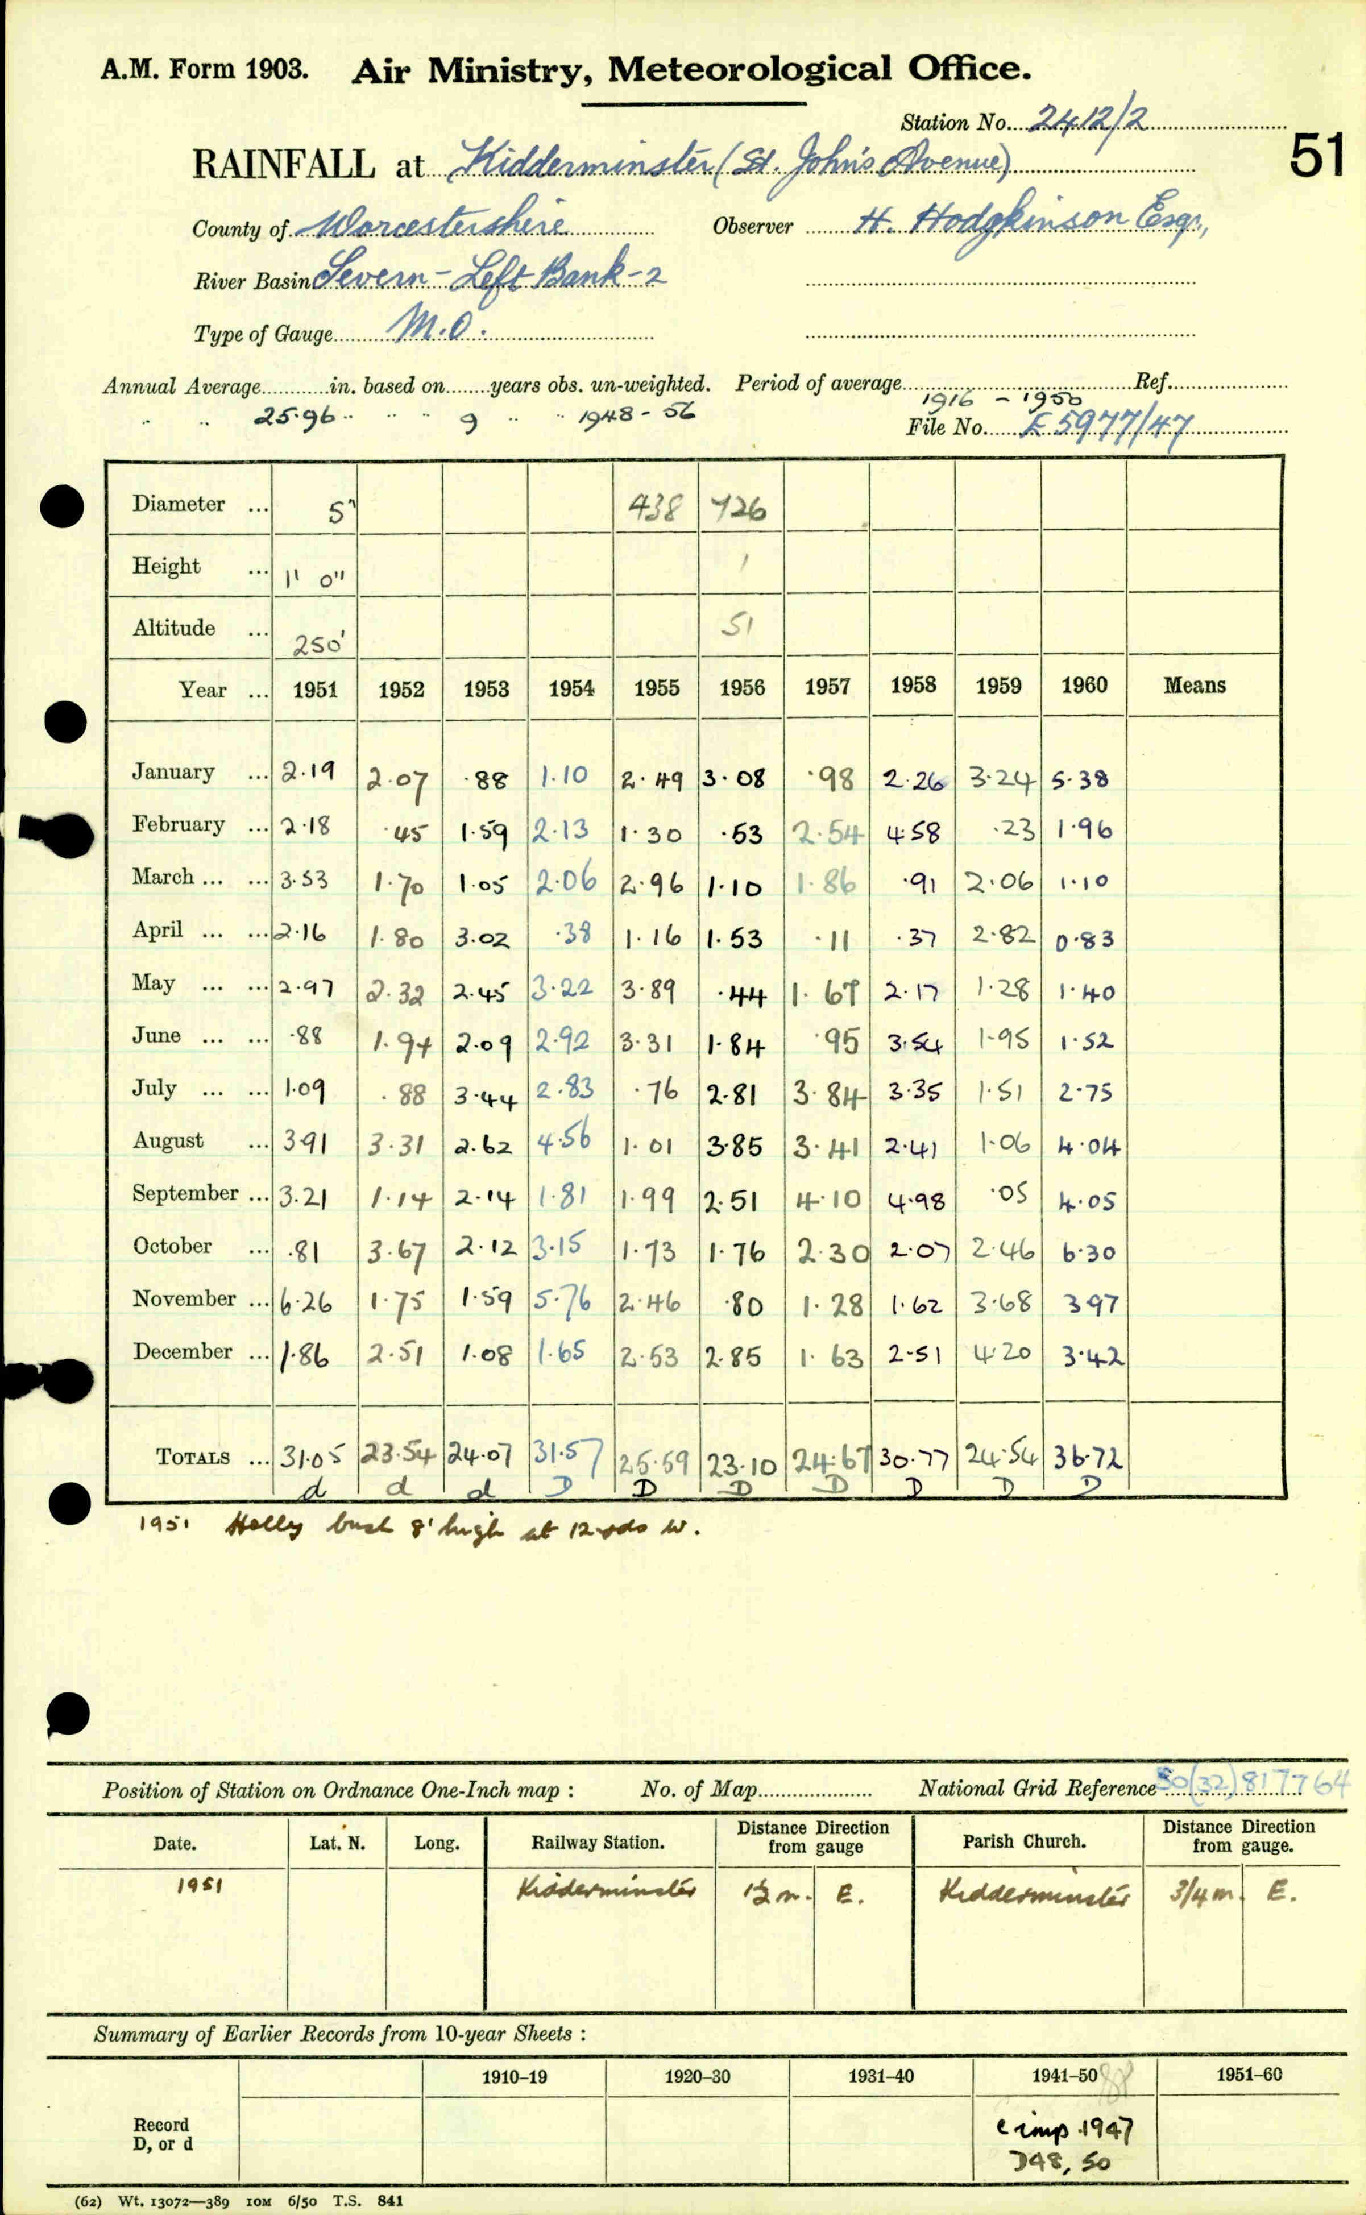 A.M. Form 1903. Air Ministry, Meteorological Office.
Station No. 2412/2
51
RAINFALL at Kidderminster (St. John's Avenue)
County of Worcestershire Observer H. Hodgkinson Esq.,
River Basin Severn - Left Bank - 2
Type of Gauge M.O.
Annual Average in. based on years obs. un-weighted. Period of average Ref.
" " 25.96 " " " 9 " " 1948 - 56 1916 - 1950
File No. E 5977/47
Diameter ... 5" 438 726
Height ... 1' 0" 1
Altitude ... 250' 51
Year ... 1951 1952 1953 1954 1955 1956 1957 1958 1959 1960 Means
January ... 2.19 2.07 .88 1.10 2.49 3.08 .98 2.26 3.24 5.38
February ... 2.18 .45 1.59 2.13 1.30 .53 2.54 4.58 .23 1.96
March ... ... 3.53 1.70 1.05 2.06 2.96 1.10 1.86 .91 2.06 1.10
April ... ... 2.16 1.80 3.02 .38 1.16 1.53 .11 .37 2.82 0.83
May ... ... 2.97 2.32 2.45 3.22 3.89 .44 1.67 2.17 1.28 1.40
June ... ... .88 1.94 2.09 2.92 3.31 1.84 .95 3.54 1.95 1.52
July ... ... 1.09 .88 3.44 2.83 .76 2.81 3.84 3.35 1.51 2.75
August ... 3.91 3.31 2.62 4.56 1.01 3.85 3.41 2.41 1.06 4.04
September ... 3.21 1.14 2.14 1.81 1.99 2.51 4.10 4.98 .05 4.05
October ... .81 3.67 2.12 3.15 1.73 1.76 2.30 2.07 2.46 6.30
November ... 6.26 1.75 1.59 5.76 2.46 .80 1.28 1.62 3.68 3.97
December ... 1.86 2.51 1.08 1.65 2.53 2.85 1.63 2.51 4.20 3.42
TOTALS ... 31.05 23.54 24.07 31.57 25.59 23.10 24.67 30.77 24.54 36.72
d d d D D D D D D D
1951 Holly bush 8' high at 12 yds W.
Position of Station on Ordnance One-Inch map : No. of Map National Grid Reference SO(32)817764
Date. Lat. N. Long. Railway Station. Distance from Direction gauge Parish Church. Distance from Direction gauge.
1951 Kidderminster 1½ m. E. Kidderminster 3/4 m. E.
Summary of Earlier Records from 10-year Sheets :
1910–19 1920–30 1931–40 1941–50 1951–60
Record
D, or d
c imp 1947
D48, 50
(62) Wt. 13072—389 10M 6/50 T.S. 841